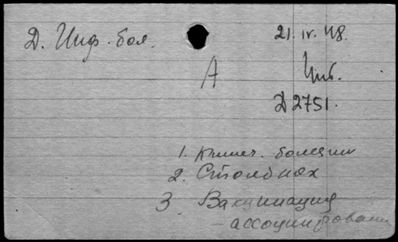 Д. Инф. бол. 21.IV.48.
А Инв.
Д2751.
1. Клинич. болезни
2. Столбняк
3. Вакцинация
- ассоциирован